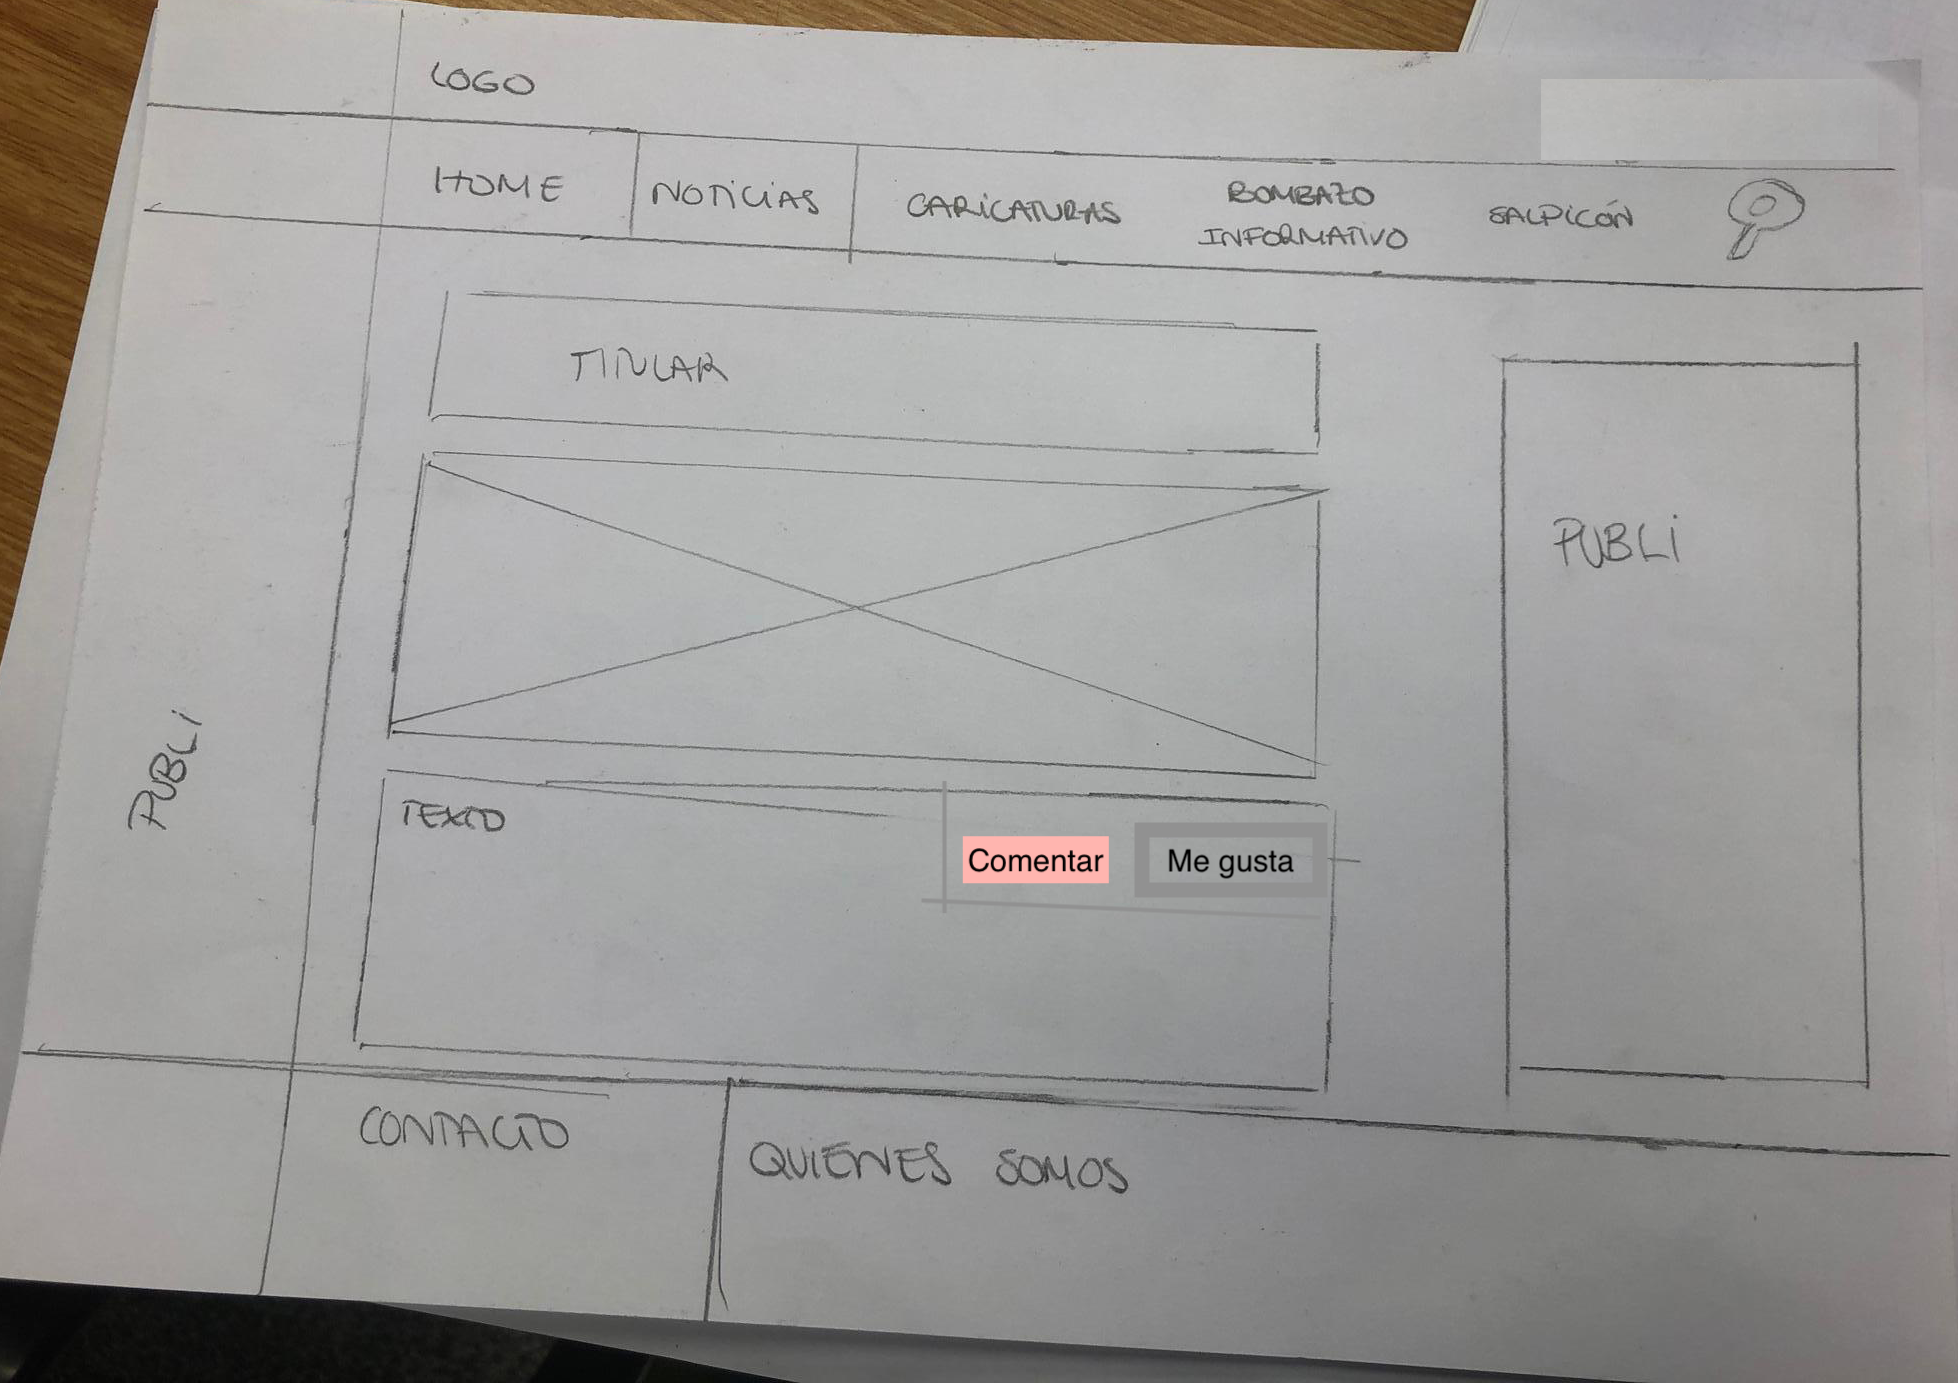 LOGO
HOME
NOTICIAS
CARICATURAS
BOMBAZO
INFORMATIVO
SALPICÓN
TITULAR
PUBLI
PUBLI
TEXTO
Comentar
Me gusta
CONTACTO
QUIENES SOMOS